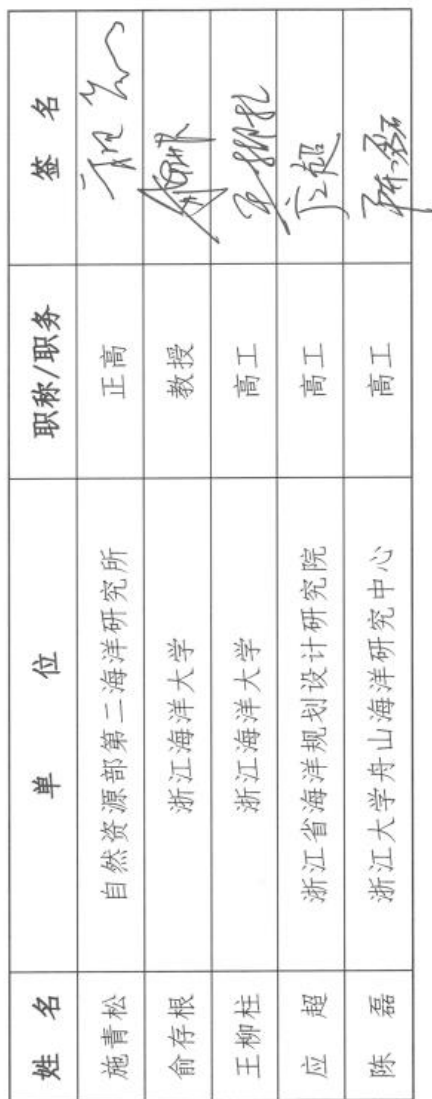 姓 名 单 位 职称/职务 签 名
施青松 自然资源部第二海洋研究所 正高
俞存根 浙江海洋大学 教授
王柳柱 浙江海洋大学 高工
应 超 浙江省海洋规划设计研究院 高工 应超
陈 磊 浙江大学舟山海洋研究中心 高工 陈磊